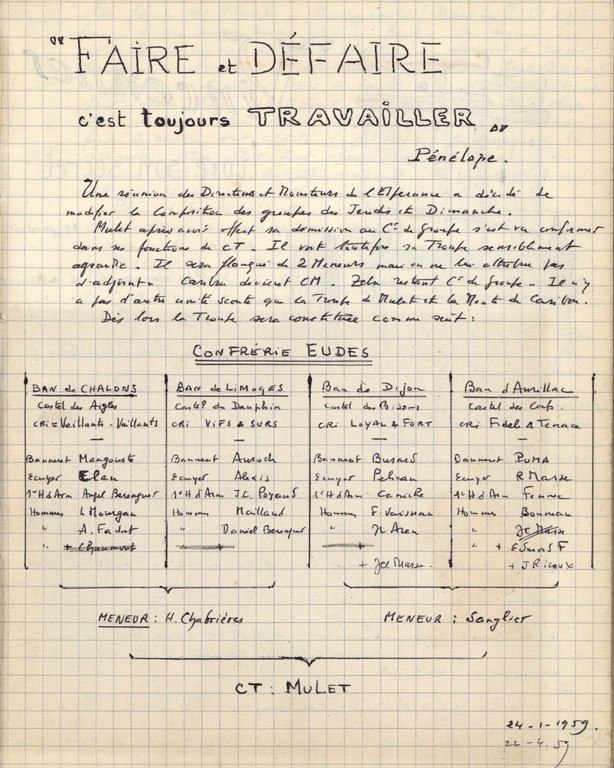 "FAIRE et DÉFAIRE
c'est toujours TRAVAILLER"
Pénélope.
Une réunion des Directeurs et Moniteurs de l'Espérance a décidé de
modifier la Composition des groupes des Jeudis et Dimanche.
Mulet après avoir offert sa démission au Cᶠ de Groupe s'est vu confirmer
dans ses fonctions de CT. Il voit toutefois sa Troupe sensiblement
agrandie. Il sera flanqué de 2 Meneurs mais on ne lui attribue pas
d'adjoint. Caribou devient CM. Zebu restant Cᶠ de Groupe. Il n'y
a pas d'autre unité scoute que la Troupe de Mulet et la Meute de Caribou.
Dès lors la Troupe sera constituée comme suit :
CONFRÉRIE EUDES
BAN de CHALONS
Castel des Aigles
CRi = Vaillants - Vaillants
Banneret Mangouste
Ecuyer Elan
1ᵉʳ H d'Arm Angel Berenguer
Hommes L Mourgan
" A. Fadat
" + Chaumont
BAN de LiMOGES
Castᵉˡ du Dauphin
CRi ViFS & SURS
Banneret Auroch
Ecuyer Alexis
1ᵉʳ H d'Arm J.C. Poyaud
Hommes Mailland
" Daniel Berenguer
+
Ban de Dijon
Castel des Bisons
CRi LOYAL & FORT
Banneret Busard
Ecuyer Pelican
1ᵉʳ H d'Arm Caniche
Hommes F. Vaisseau
" JL Aren
+
+ Jcl Masse
Ban d'Aurillac
Castel des Cerfs
CRi Fidel & Tenace
Banneret PUMA
Ecuyer R Masse
1ᵉʳ H d'Arm Fennec
Hommes Bonneau
" Jcl Masse
" + Edmond F
+ J Ricoux
MENEUR : H. Chabrières
MENEUR : Sanglier
CT : MULET
24-1-1959.
22-4.59